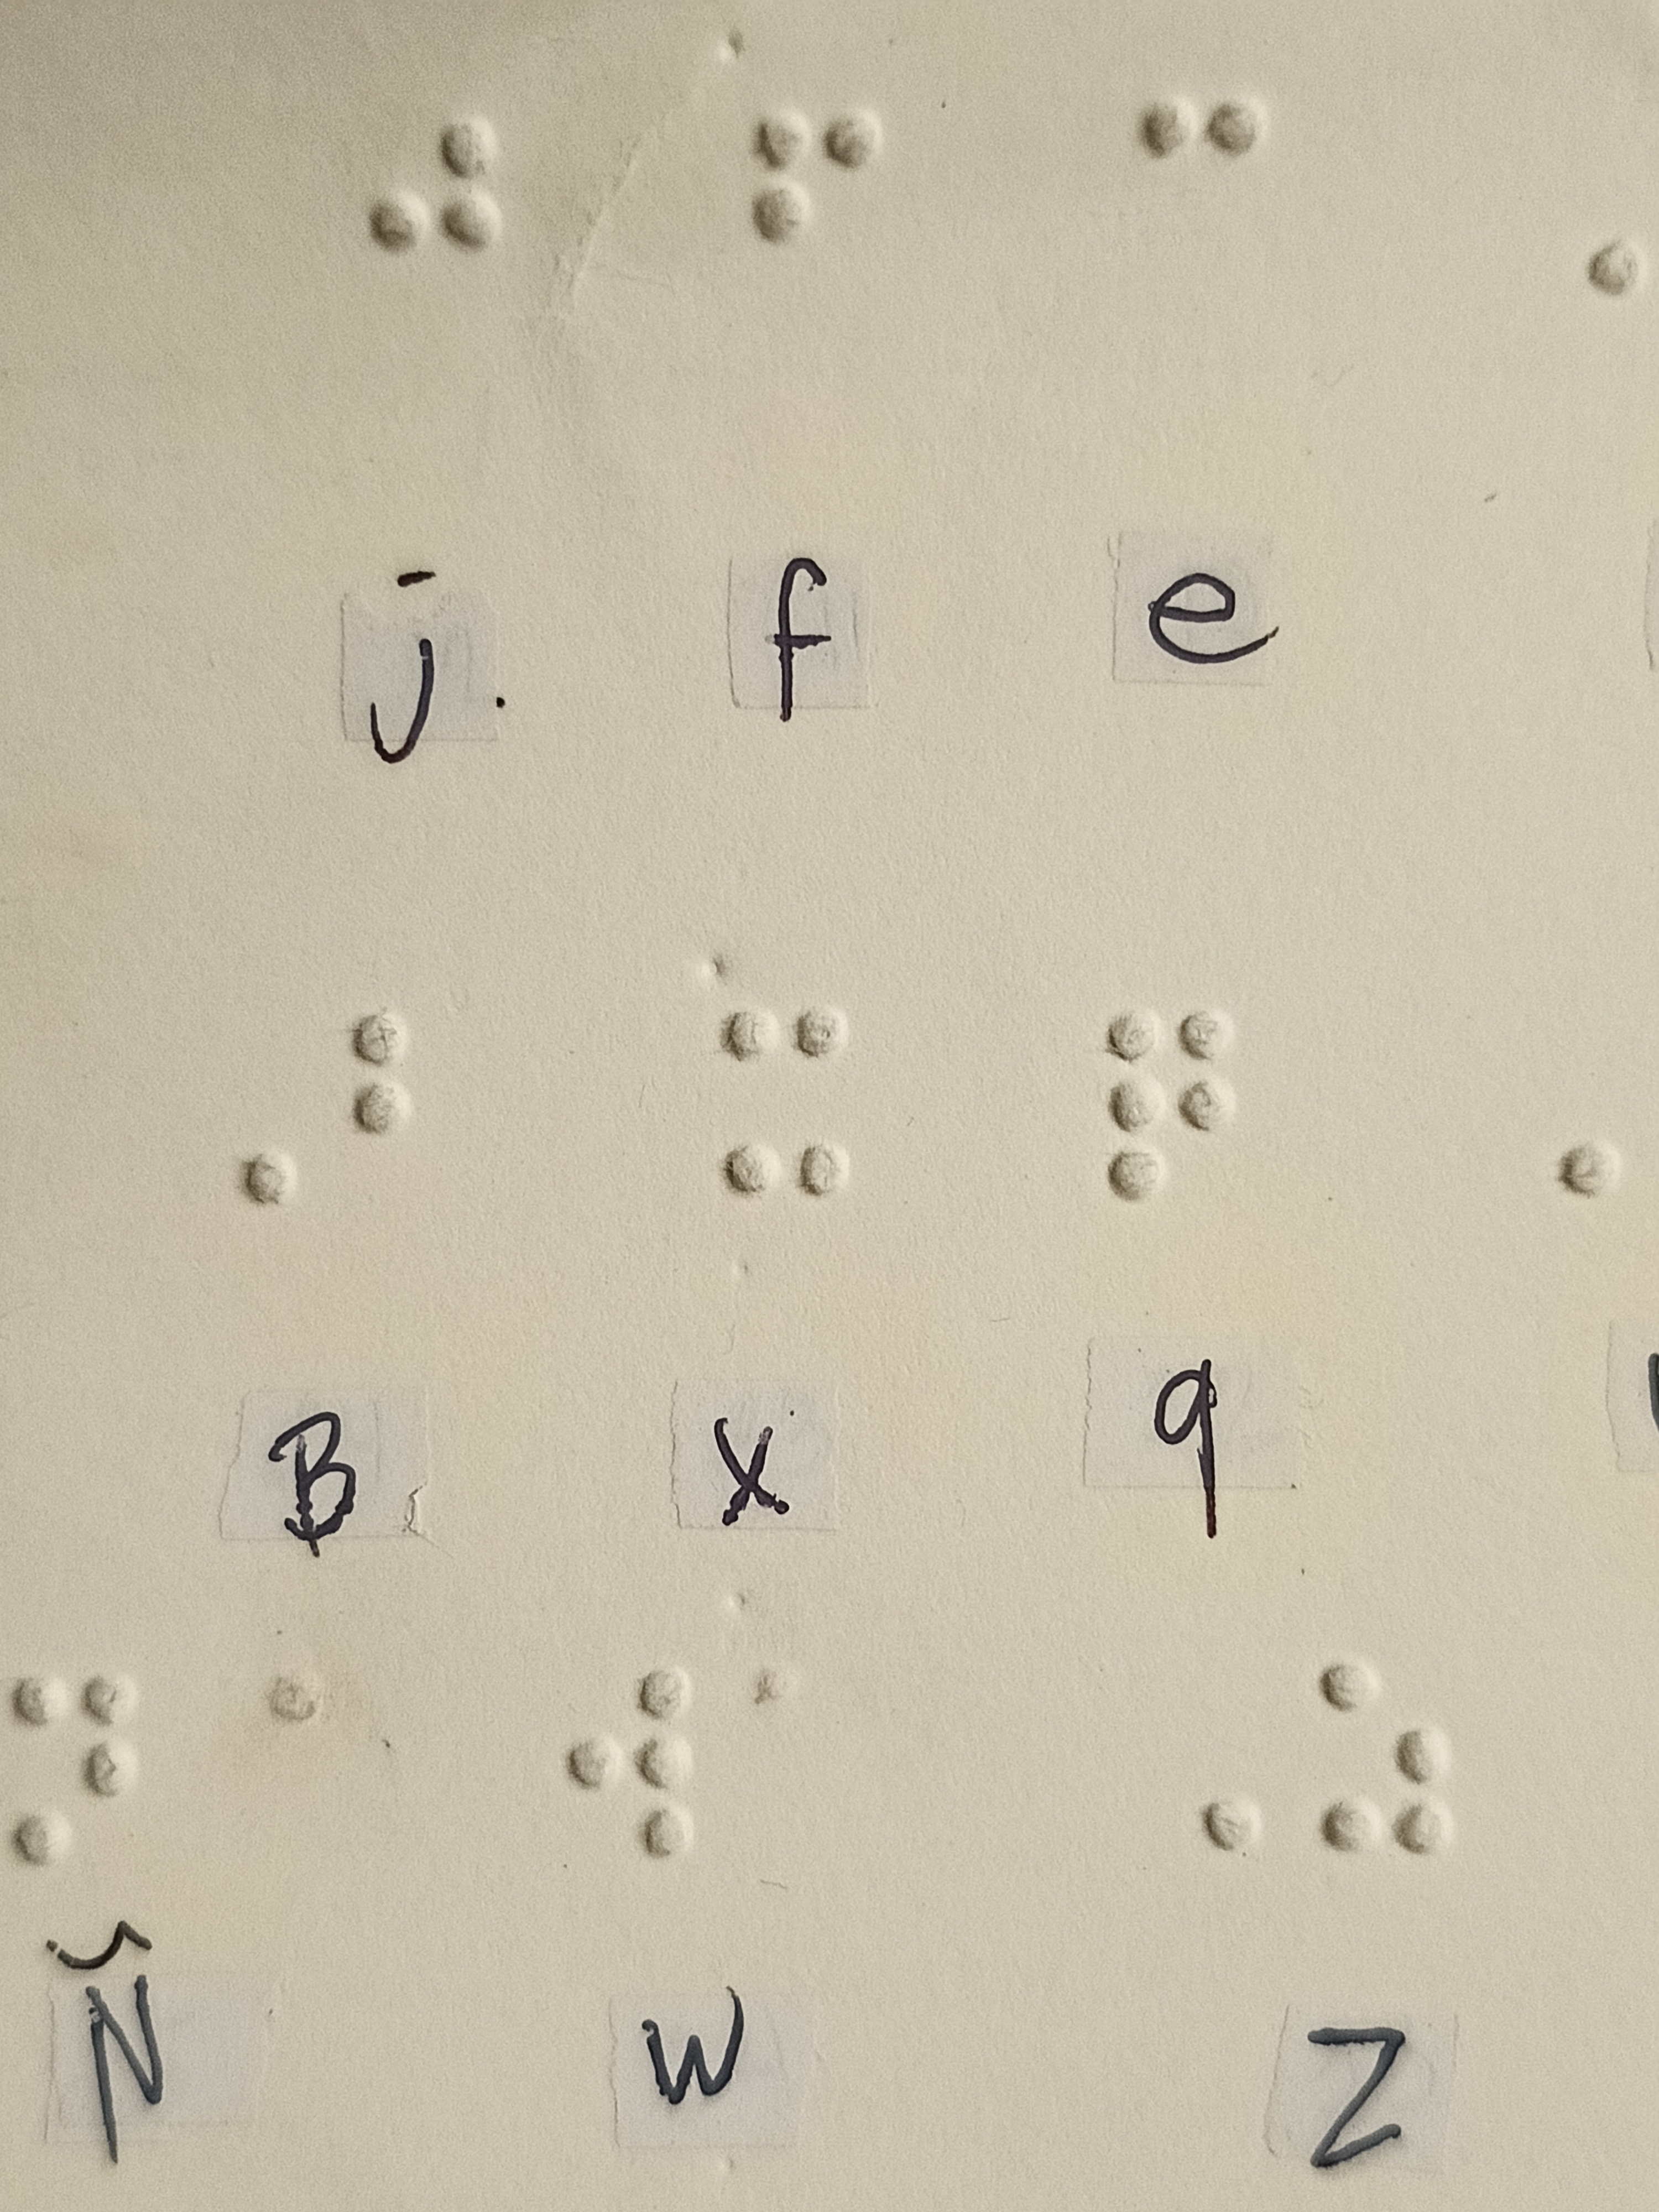 ⠚ ⠋ ⠉
j f e
⠠⠃ ⠭ ⠟
B x q
⠝ ⠺ ⠠⠵
Ñ w Z